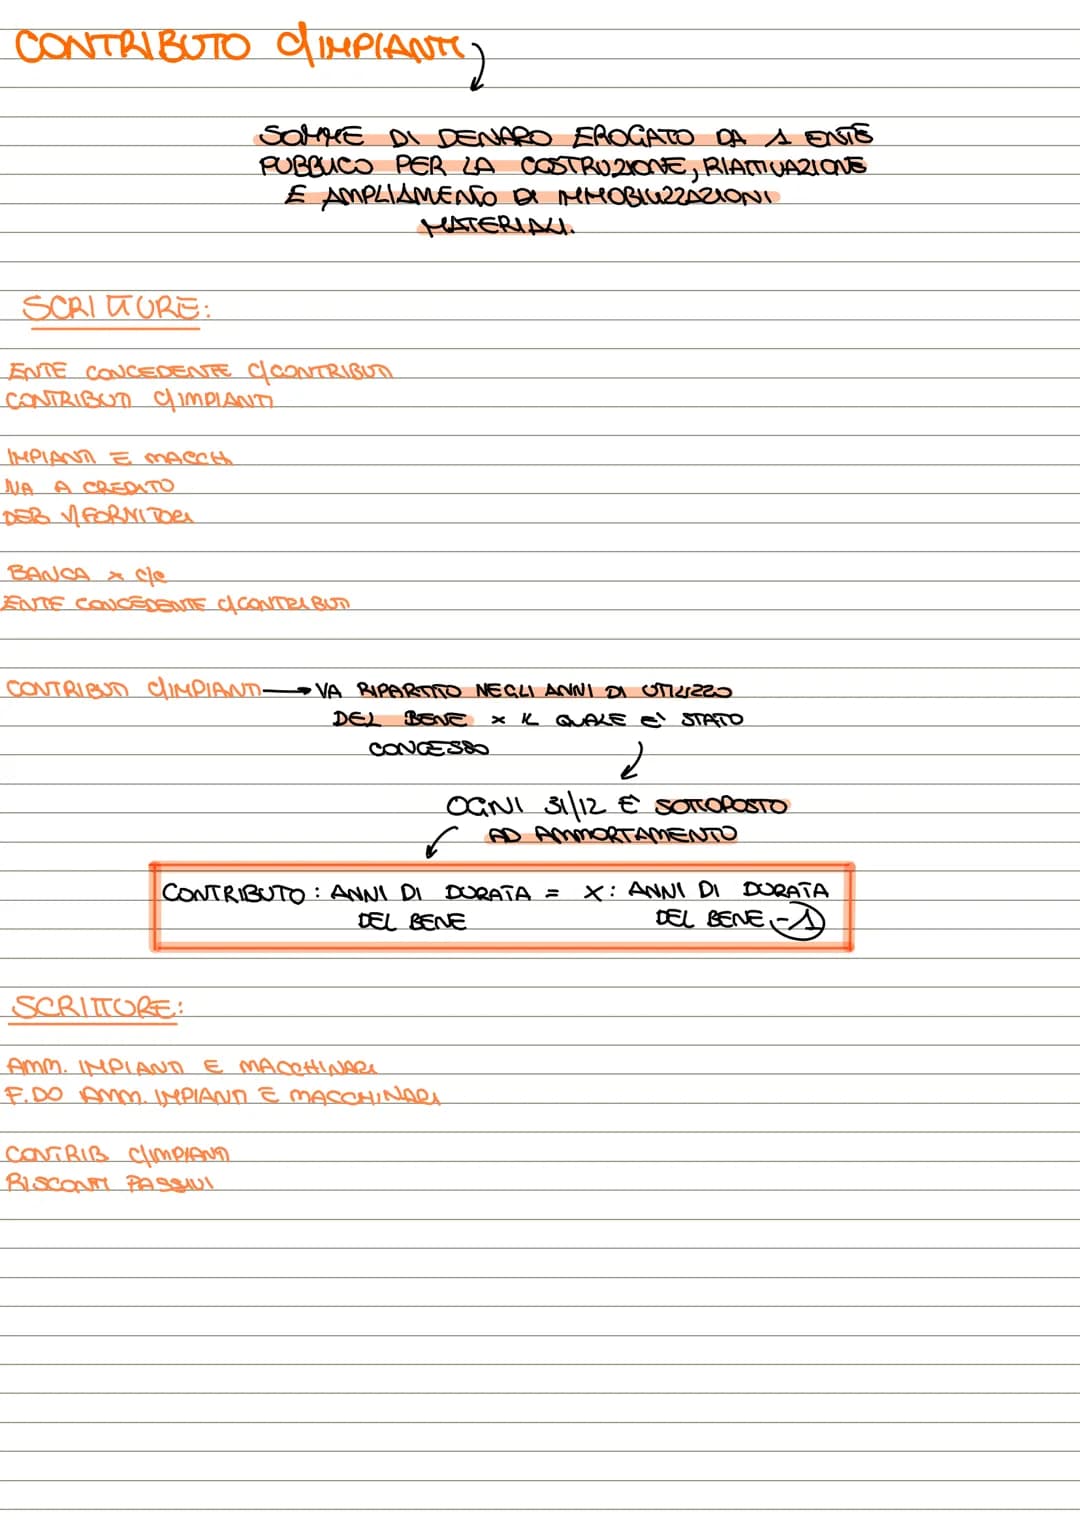 CONTRIBUTO C/IMPIANTI
SOMME DI DENARO EROGATO DA 1 ENTE
PUBBLICO PER LA COSTRUZIONE, RIATTIVAZIONE
E AMPLIAMENTO DI IMMOBILIZZAZIONI
MATERIALI.
SCRITTURE:
ENTE CONCEDENTE C/CONTRIBUTI
CONTRIBUTI C/IMPIANTI
IMPIANTI E MACCH
IVA A CREDITO
DEB V/FORNITORI
BANCA x c/c
ENTE CONCEDENTE C/CONTRIBUTI
CONTRIBUTI C/IMPIANTI → VA RIPARTITO NEGLI ANNI DI UTILIZZO
DEL BENE x IL QUALE E' STATO
CONCESSO
OGNI 31/12 E' SOTTOPOSTO
AD AMMORTAMENTO
CONTRIBUTO : ANNI DI DURATA = X : ANNI DI DURATA
DEL BENE DEL BENE -1
SCRITTURE:
AMM. IMPIANTI E MACCHINARI
F.DO AMM. IMPIANTI E MACCHINARI
CONTRIB C/IMPIANTI
RISCONTI PASSIVI